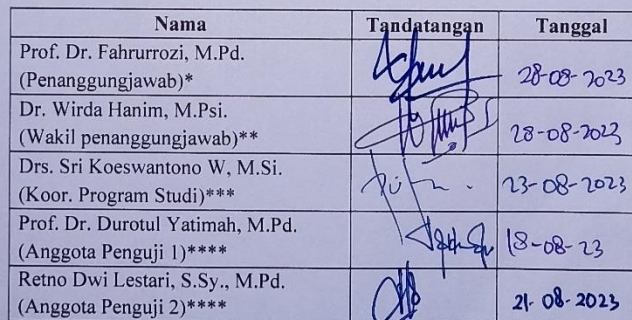 Nama Tandatangan Tanggal
Prof. Dr. Fahrurrozi, M.Pd.
(Penanggungjawab)* 28-08-2023
Dr. Wirda Hanim, M.Psi.
(Wakil penanggungjawab)** 28-08-2023
Drs. Sri Koeswantono W, M.Si.
(Koor. Program Studi)*** 23-08-2023
Prof. Dr. Durotul Yatimah, M.Pd.
(Anggota Penguji 1)**** 18-08-23
Retno Dwi Lestari, S.Sy., M.Pd.
(Anggota Penguji 2)**** 21-08-2023